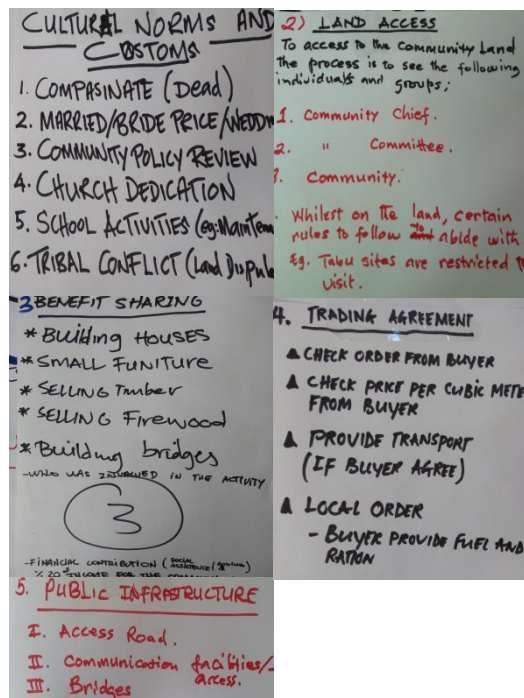 CULTURAL NORMS AND
CUSTOMS
1. COMPASINATE (Dead)
2. MARRIED/BRIDE PRICE/WEDDIN
3. COMMUNITY POLICY REVIEW
4. CHURCH DEDICATION
5. SCHOOL ACTIVITIES (eg: Mainten
6. TRIBAL CONFLICT (Land Dispute
2) LAND ACCESS
To access to the Community Land
the process is to see the following
individuals and groups;
1. Community Chief.
2. " Committee.
3. Community.
Whilest on the land, certain
rules to follow to abide with
Eg. Tabu sites are restricted to
visit.
3 BENEFIT SHARING
* Building HOUSES
* SMALL FUNITURE
* SELLING Timber
* SELLING Firewood
* Building bridges
- WHO WAS INVOLVED IN THE ACTIVITY
3
- FINANCIAL CONTRIBUTION (SOCIAL ASSISTENCE/
% 20 INCOME FOR THE
4. TRADING AGREEMENT
CHECK ORDER FROM BUYER
CHECK PRICE PER CUBIC METE
FROM BUYER
PROVIDE TRANSPORT
(IF BUYER AGREE)
LOCAL ORDER
- BUYER PROVIDE FUEL AND
RATION
5. PUBLIC INFRASTRUCTURE
I. Access Road.
II. Communication facilities/
access.
III. Bridges